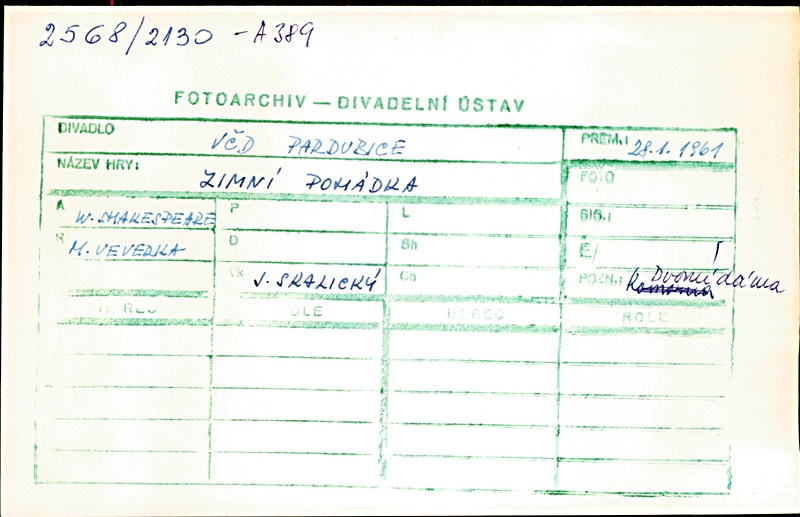 2568/2130 - A 389
FOTOARCHIV — DIVADELNÍ ÚSTAV
DIVADLO VČD PARDUBICE PREM.: 28.1.1961
NÁZEV HRY: ZIMNÍ POHÁDKA FOTO
A W. SHAKESPEARE P L SIG.:
R M. VEVERKA D Sh Č/
Vk J. SKALICKÝ Ch POZN.: Dvorní dáma
HEREC ROLE HEREC ROLE